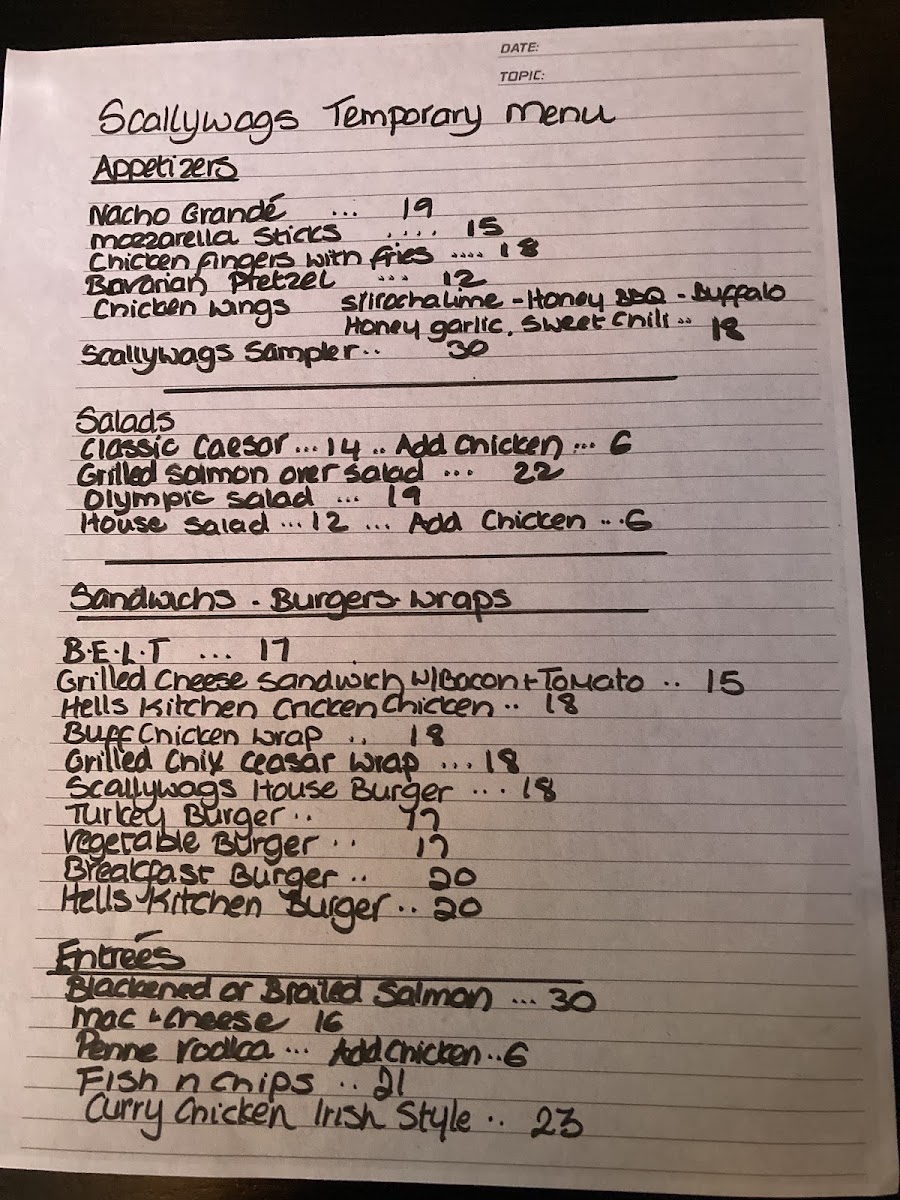 DATE:
TOPIC:
Scallywags Temporary Menu
Appetizers
Nacho Grandé ... 19
Mozzarella Sticks .... 15
Chicken fingers with fries .... 18
Bavarian Pretzel ... 12
Chicken Wings Srirachalime - Honey BBQ - Buffalo
Honey garlic, Sweet Chili .. 18
Scallywags Sampler.. 30
Salads
Classic Caesar ... 14 .. Add Chicken ... 6
Grilled Salmon over Salad ... 22
Olympic Salad ... 19
House Salad ... 12 ... Add Chicken ... 6
Sandwichs - Burgers - Wraps
B.E.L.T ... 17
Grilled Cheese Sandwich W/Bacon + Tomato .. 15
Hells Kitchen Cricken Chicken .. 18
Buff Chicken Wrap .. 18
Grilled Chix Ceasar Wrap ... 18
Scallywags House Burger ... 18
Turkey Burger .. 17
Vegetable Burger .. 17
Breakfast Burger .. 20
Hells Kitchen Burger .. 20
Entreés
Blackened or Broiled Salmon ... 30
Mac & Cheese 16
Penne Vodka ... Add Chicken .. 6
Fish n Chips .. 21
Curry Chicken Irish Style .. 23